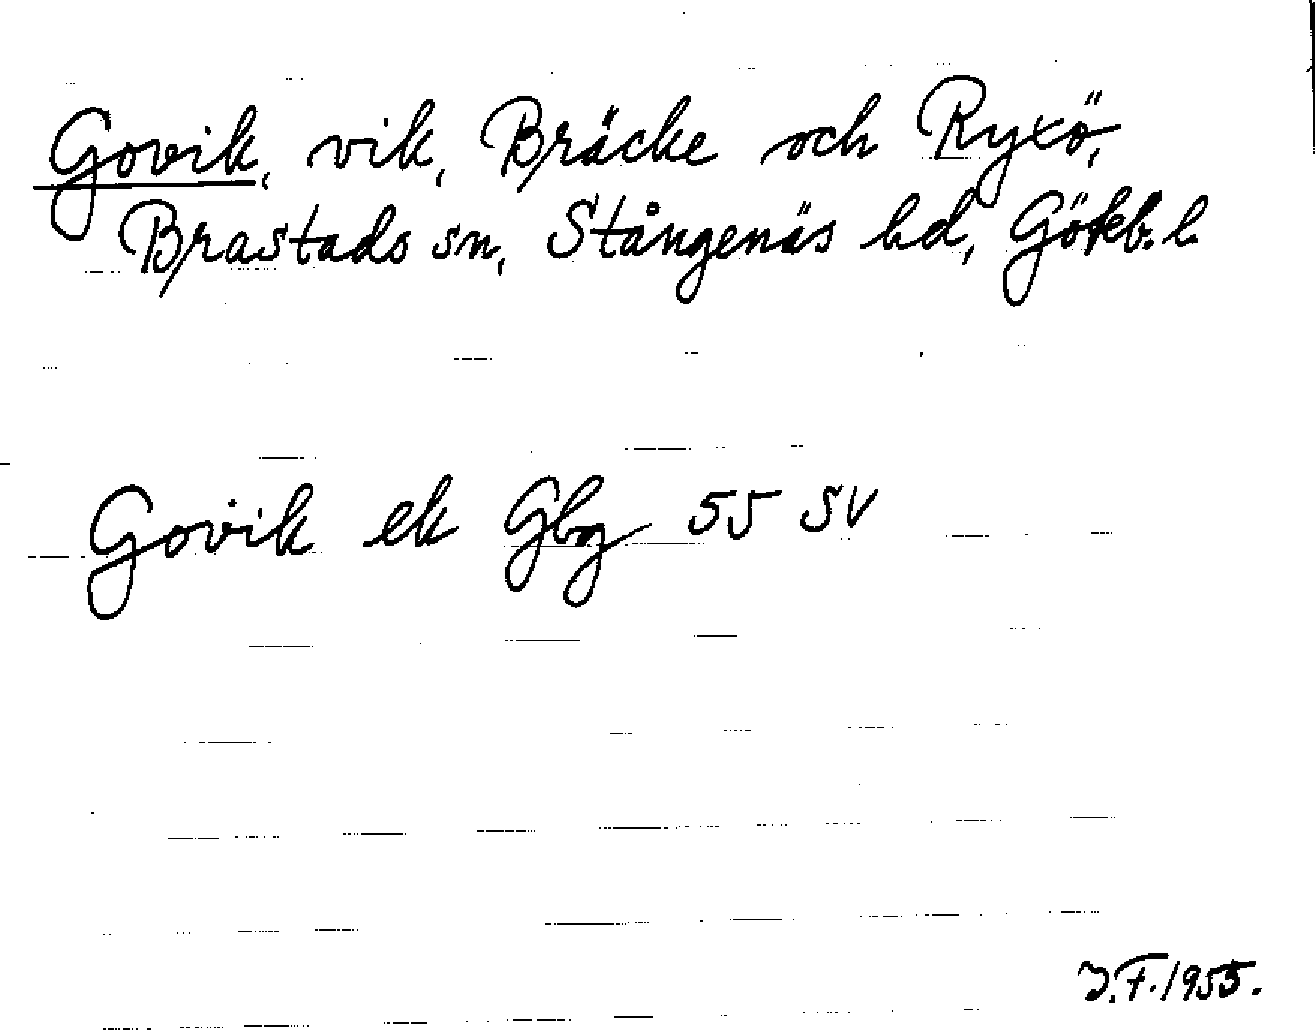 Govik, vik, Bräcke och Ryxö,
Brastads sn, Stångenäs hd, Göteb. l.
Govik ek Gbg 55 SV
J.F. 1955.